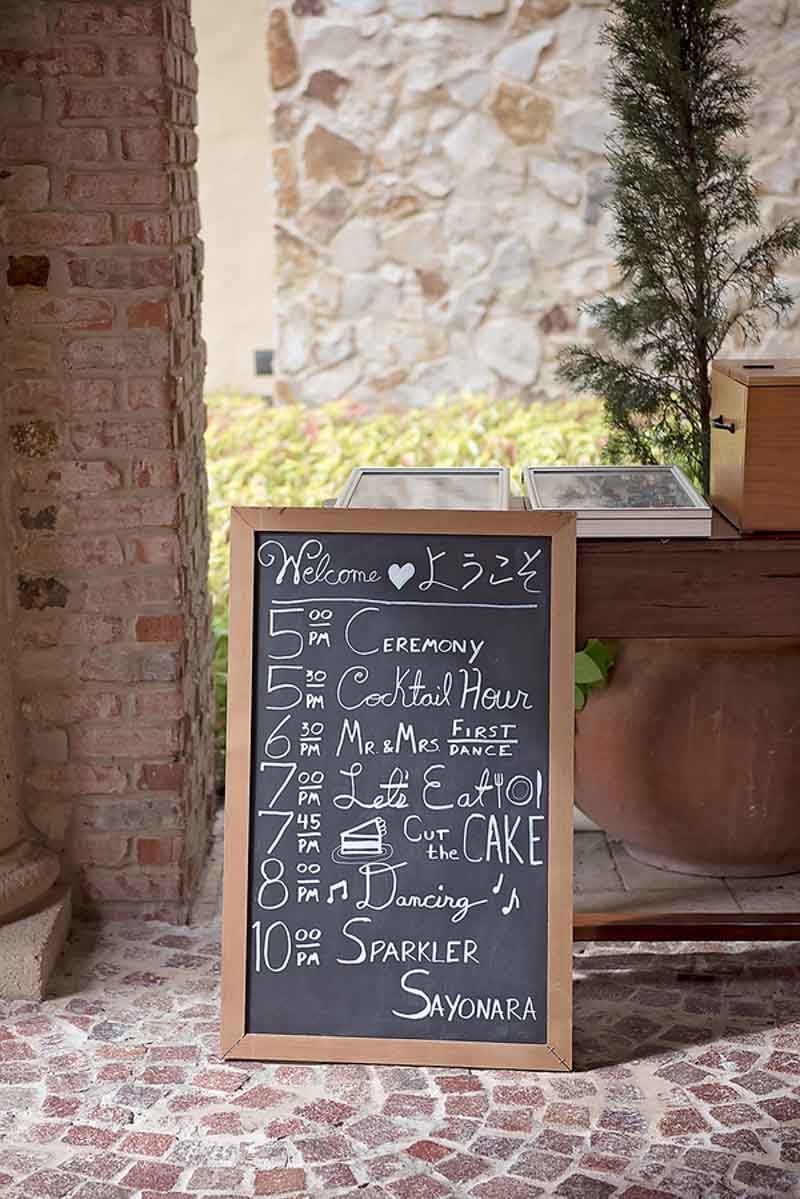 Welcome ♥ ようこそ
5 00 PM CEREMONY
5 30 PM Cocktail Hour
6 30 PM MR. & MRS. FIRST DANCE
7 00 PM Let's Eat
7 45 PM CUT the CAKE
8 00 PM Dancing
10 00 PM SPARKLER
SAYONARA